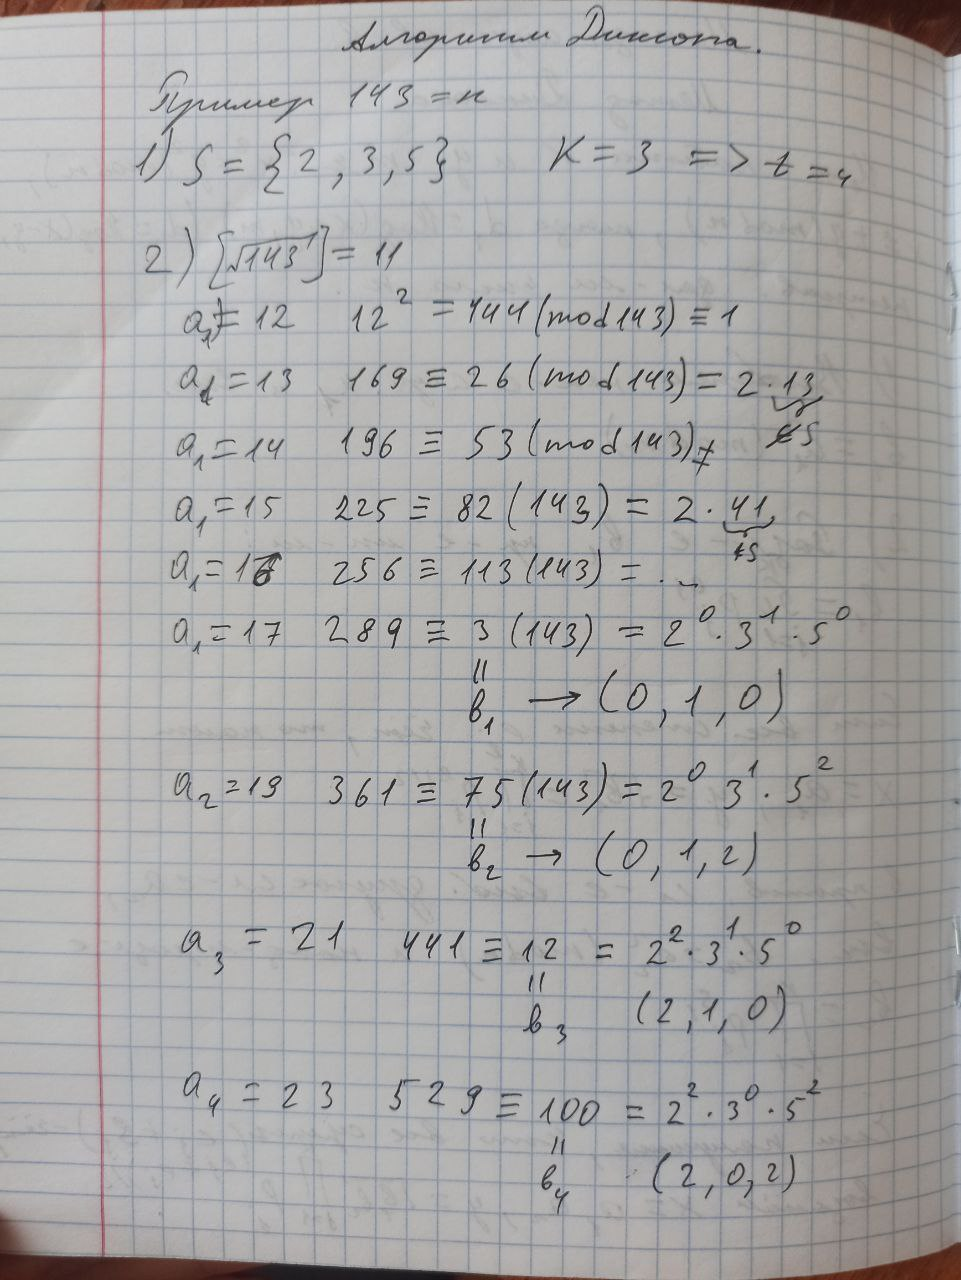 Алгоритм Диксона.
Пример 143 = n
1) S = {2, 3, 5} K = 3 => t = 4
2) [√143] = 11
a₁ = 12 12² = 444 (mod 143) ≡ 1
a₁ = 13 169 ≡ 26 (mod 143) = 2 · 13
∉S
a₁ = 14 196 ≡ 53 (mod 143)
a₁ = 15 225 ≡ 82 (143) = 2 · 41
∉S
a₁ = 16 256 ≡ 113 (143) = ...
a₁ = 17 289 ≡ 3 (143) = 2⁰ · 3¹ · 5⁰
||
b₁ → (0, 1, 0)
a₂ = 19 361 ≡ 75 (143) = 2⁰ 3¹ · 5²
||
b₂ → (0, 1, 2)
a₃ = 21 441 ≡ 12 = 2² · 3¹ · 5⁰
||
b₃ (2, 1, 0)
a₄ = 23 529 ≡ 100 = 2² · 3⁰ · 5²
||
b₄ (2, 0, 2)